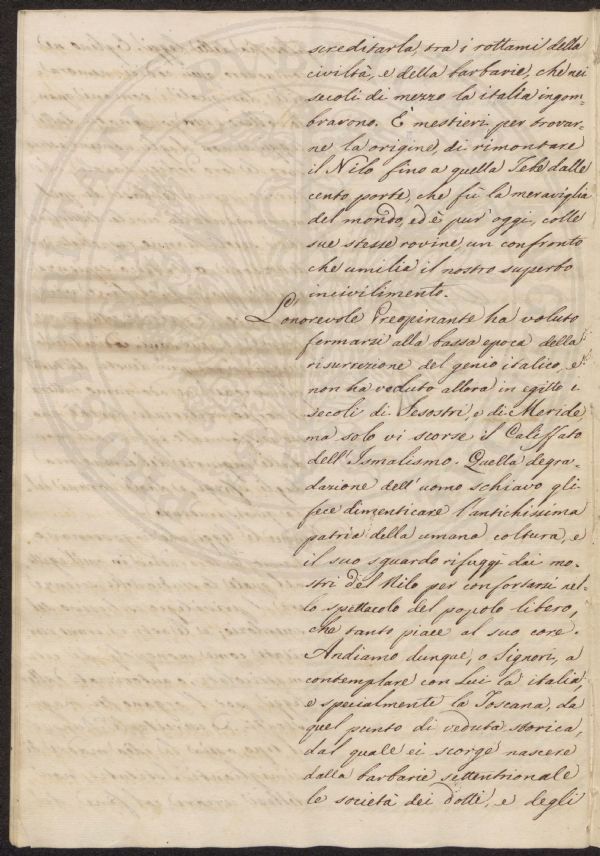 screditarla, tra i rottami della
civiltà, e della barbarie, che nei
secoli di mezzo la italia ingom-
bravono. È mestieri per trovar-
ne la origine, di rimontare
il Nilo fino a quella Tebe dalle
cento porte, che fù la meraviglia
del mondo, ed è pur' oggi, colle
sue stesse rovine, un confronto
che umilia il nostro superbo
incivilimento.
L'onorevole Preopinante ha voluto
fermarsi alla bassa epoca della
risurrezione del genio italico, e
non ha veduto allora in egitto i
secoli di Sesostri, e di Meride
ma solo vi scorse il Califfato
dell'Ismalismo. Quella degra-
dazione dell'uomo schiavo gli
fece dimenticare l'antichissima
patria della umana coltura, e
il suo sguardo rifuggì dai mo-
stri del Nilo per confortarsi nel-
lo spettacolo del popolo libero,
che tanto piace al suo core.
Andiamo dunque, o Signori, a
contemplare con Lui la italia,
e specialmente la Toscana, da
quel punto di veduta storica,
dal quale ei scorge nascere
dalla barbarie settentrionale
le società dei dotti, e degli